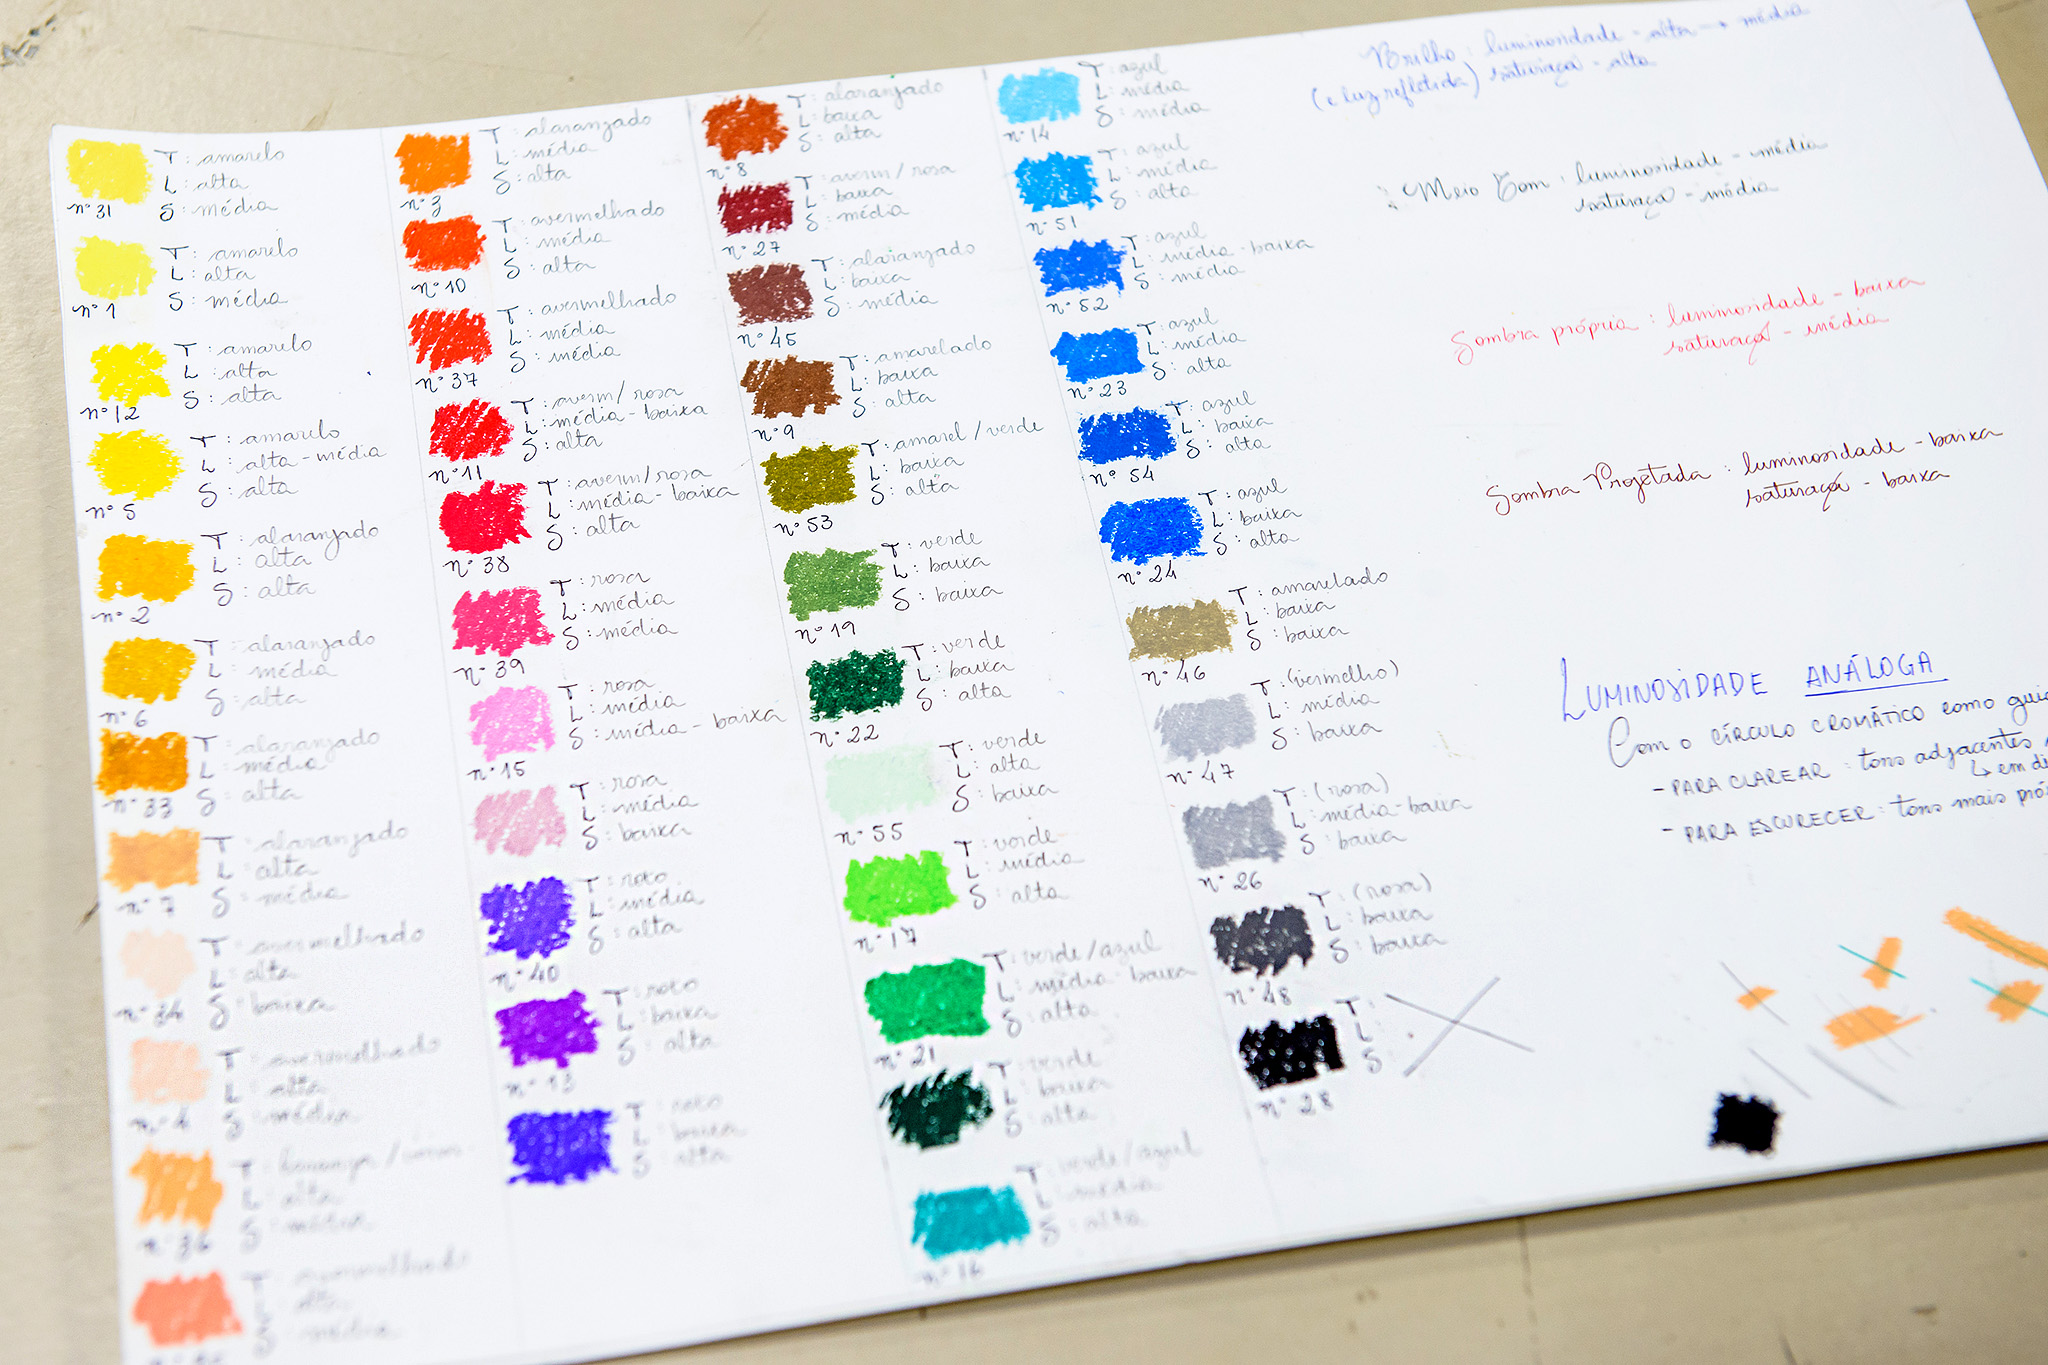 T: amarelo
L: alta
S: média
nº 31
T: amarelo
L: alta
S: média
nº 1
T: amarelo
L: alta
S: alta
nº 12
T: amarelo
L: alta-média
S: alta
nº 5
T: alaranjado
L: alta
S: alta
nº 2
T: alaranjado
L: média
S: alta
nº 6
T: alaranjado
L: média
S: alta
nº 33
T: alaranjado
L: alta
S: média
nº 7
T: avermelhado
L: alta
S: baixa
nº 34
T: avermelhado
L: alta
S: média
nº 4
T:
L: alta
S: média
nº 36
T: avermelhado
L: alta
S: média
T: alaranjado
L: média
S: alta
nº 3
T: avermelhado
L: média
S: alta
nº 10
T: avermelhado
L: média
S: média
nº 37
T: averm/rosa
L: média-baixa
S: alta
nº 11
T: averm/rosa
L: média-baixa
S: alta
nº 38
T: rosa
L: média
S: média
nº 39
T: rosa
L: média
S: média-baixa
nº 15
T: rosa
L: média
S: baixa
T: roxo
L: média
S: alta
nº 40
T: roxo
L: baixa
S: alta
nº 13
T: roxo
L: baixa
S: alta
T: alaranjado
L: baixa
S: alta
nº 8
T: averm/rosa
L: baixa
S: média
nº 27
T: alaranjado
L: baixa
S: média
nº 45
T: amarelado
L: baixa
S: alta
nº 9
T: amarel/verde
L: baixa
S: alta
nº 53
T: verde
L: baixa
S: baixa
nº 19
T: verde
L: baixa
S: alta
nº 22
T: verde
L: alta
S: baixa
nº 55
T: verde
L: média
S: alta
nº 17
T: verde/azul
L: média-baixa
S: alta
nº 21
T: verde
L: baixa
S: alta
T: verde/azul
L: média
S: alta
nº 16
T: azul
L: média
S: média
nº 14
T: azul
L: média
S: alta
nº 51
T: azul
L: média-baixa
S: média
nº 52
T: azul
L: média
S: alta
nº 23
T: azul
L: baixa
S: alta
nº 54
T: azul
L: baixa
S: alta
nº 24
T: amarelado
L: baixa
S: baixa
nº 46
T: (vermelho)
L: média
S: baixa
nº 47
T: (rosa)
L: média-baixa
S: baixa
nº 26
T: (rosa)
L: baixa
S: baixa
nº 48
T:
L:
S:
nº 28
Brilho: luminosidade - alta → média
(e luz refletida) saturaçã - alta
Meio Tom: luminosidade - média
saturaçã - média
Sombra própria: luminosidade - baixa
saturaçã - média
Sombra Projetada: luminosidade - baixa
saturaçã - baixa
LUMINOSIDADE ANÁLOGA
Com o CÍRCULO CROMÁTICO como guia
- PARA CLAREAR: tons adjacentes
↳ em
- PARA ESCURECER: tons mais